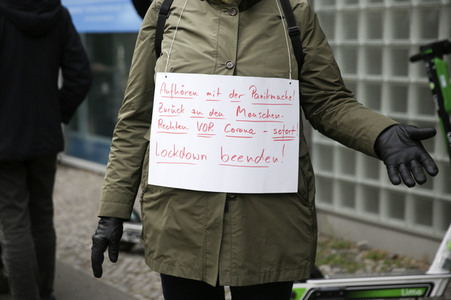 Aufhören mit der Panikmache!
Zurück zu den Menschen-
Rechten VOR Corona - sofort
Lockdown beenden!
Lime